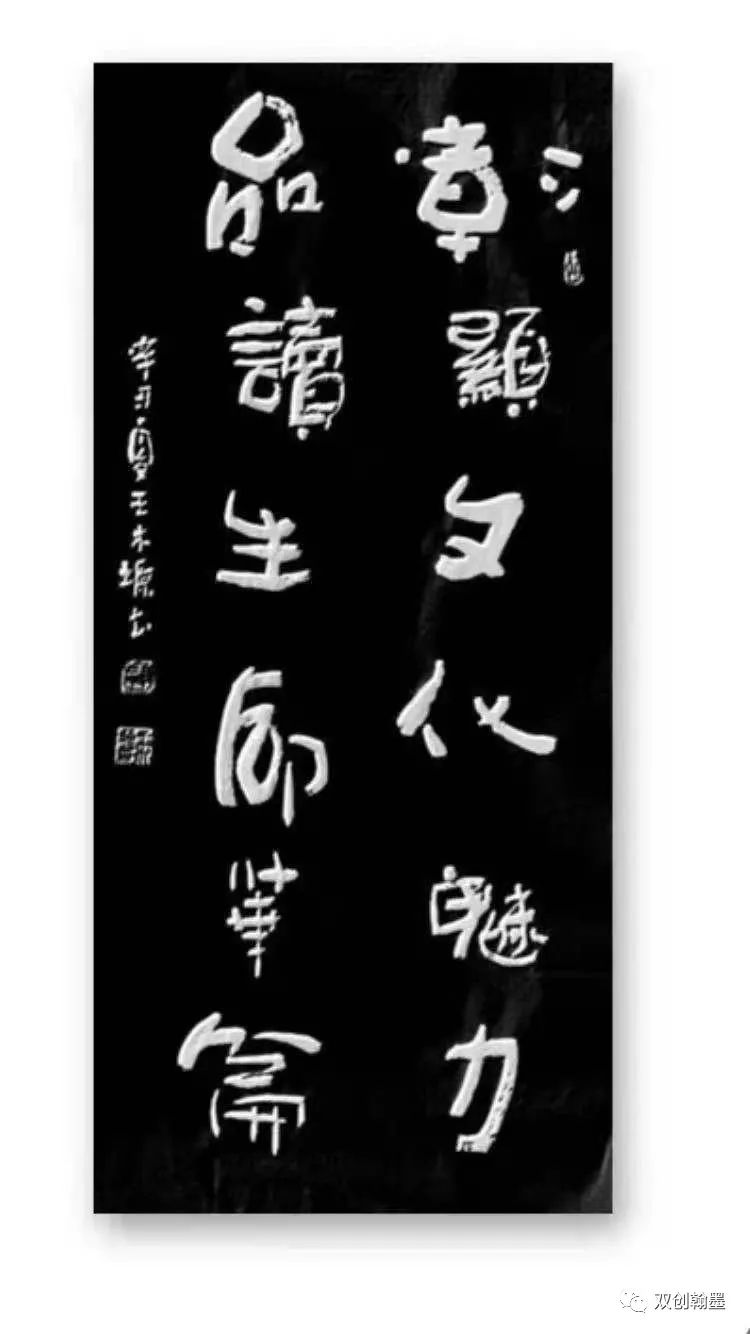 彰顯文化魅力
品讀生命華篇
辛丑夏王木书
双创翰墨